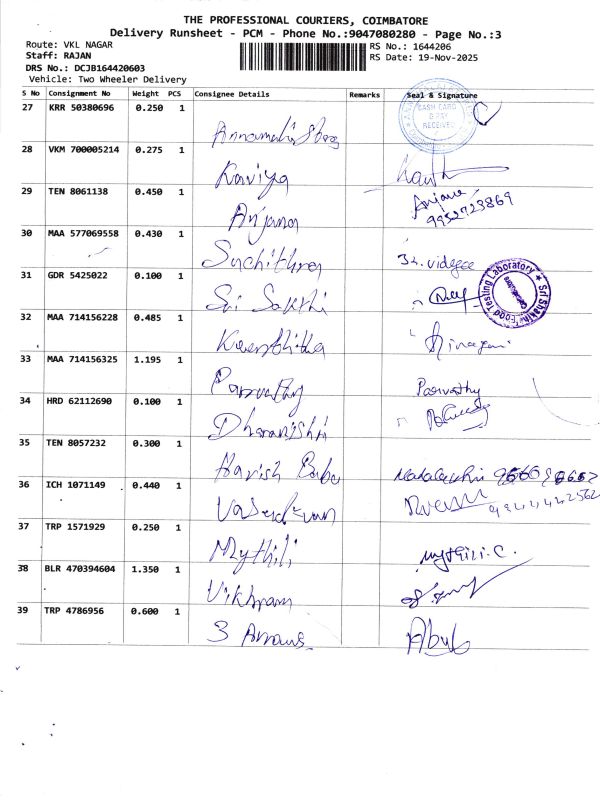 THE PROFESSIONAL COURIERS, COIMBATORE
Delivery Runsheet - PCM - Phone No.:9047080280 - Page No.:3
Route: VKL NAGAR
Staff: RAJAN
DRS No.: DCJB164420603
Vehicle: Two Wheeler Delivery
RS No.: 1644206
RS Date: 19-Nov-2025
S No Consignment No Weight PCS Consignee Details Remarks Seal & Signature
27 KRR 50380696 0.250 1
CASH CARD
RECEIVED
28 VKM 700005214 0.275 1 Kaviya
29 TEN 8061138 0.450 1 Anjana Anjana
9952723869
30 MAA 577069558 0.430 1 Suchithra
31 GDR 5425022 0.100 1 Sri Sakthi
Food Testing Laboratory
32 MAA 714156228 0.485 1 Keerthitha
33 MAA 714156325 1.195 1 Parvathy Parvathy
34 HRD 62112690 0.100 1 Dharanishri
35 TEN 8057232 0.300 1 Harish Babu
36 ICH 1071149 0.440 1 Vasudevan
37 TRP 1571929 0.250 1 Mythili Mythili.C.
38 BLR 470394604 1.350 1 Vikhram
39 TRP 4786956 0.600 1